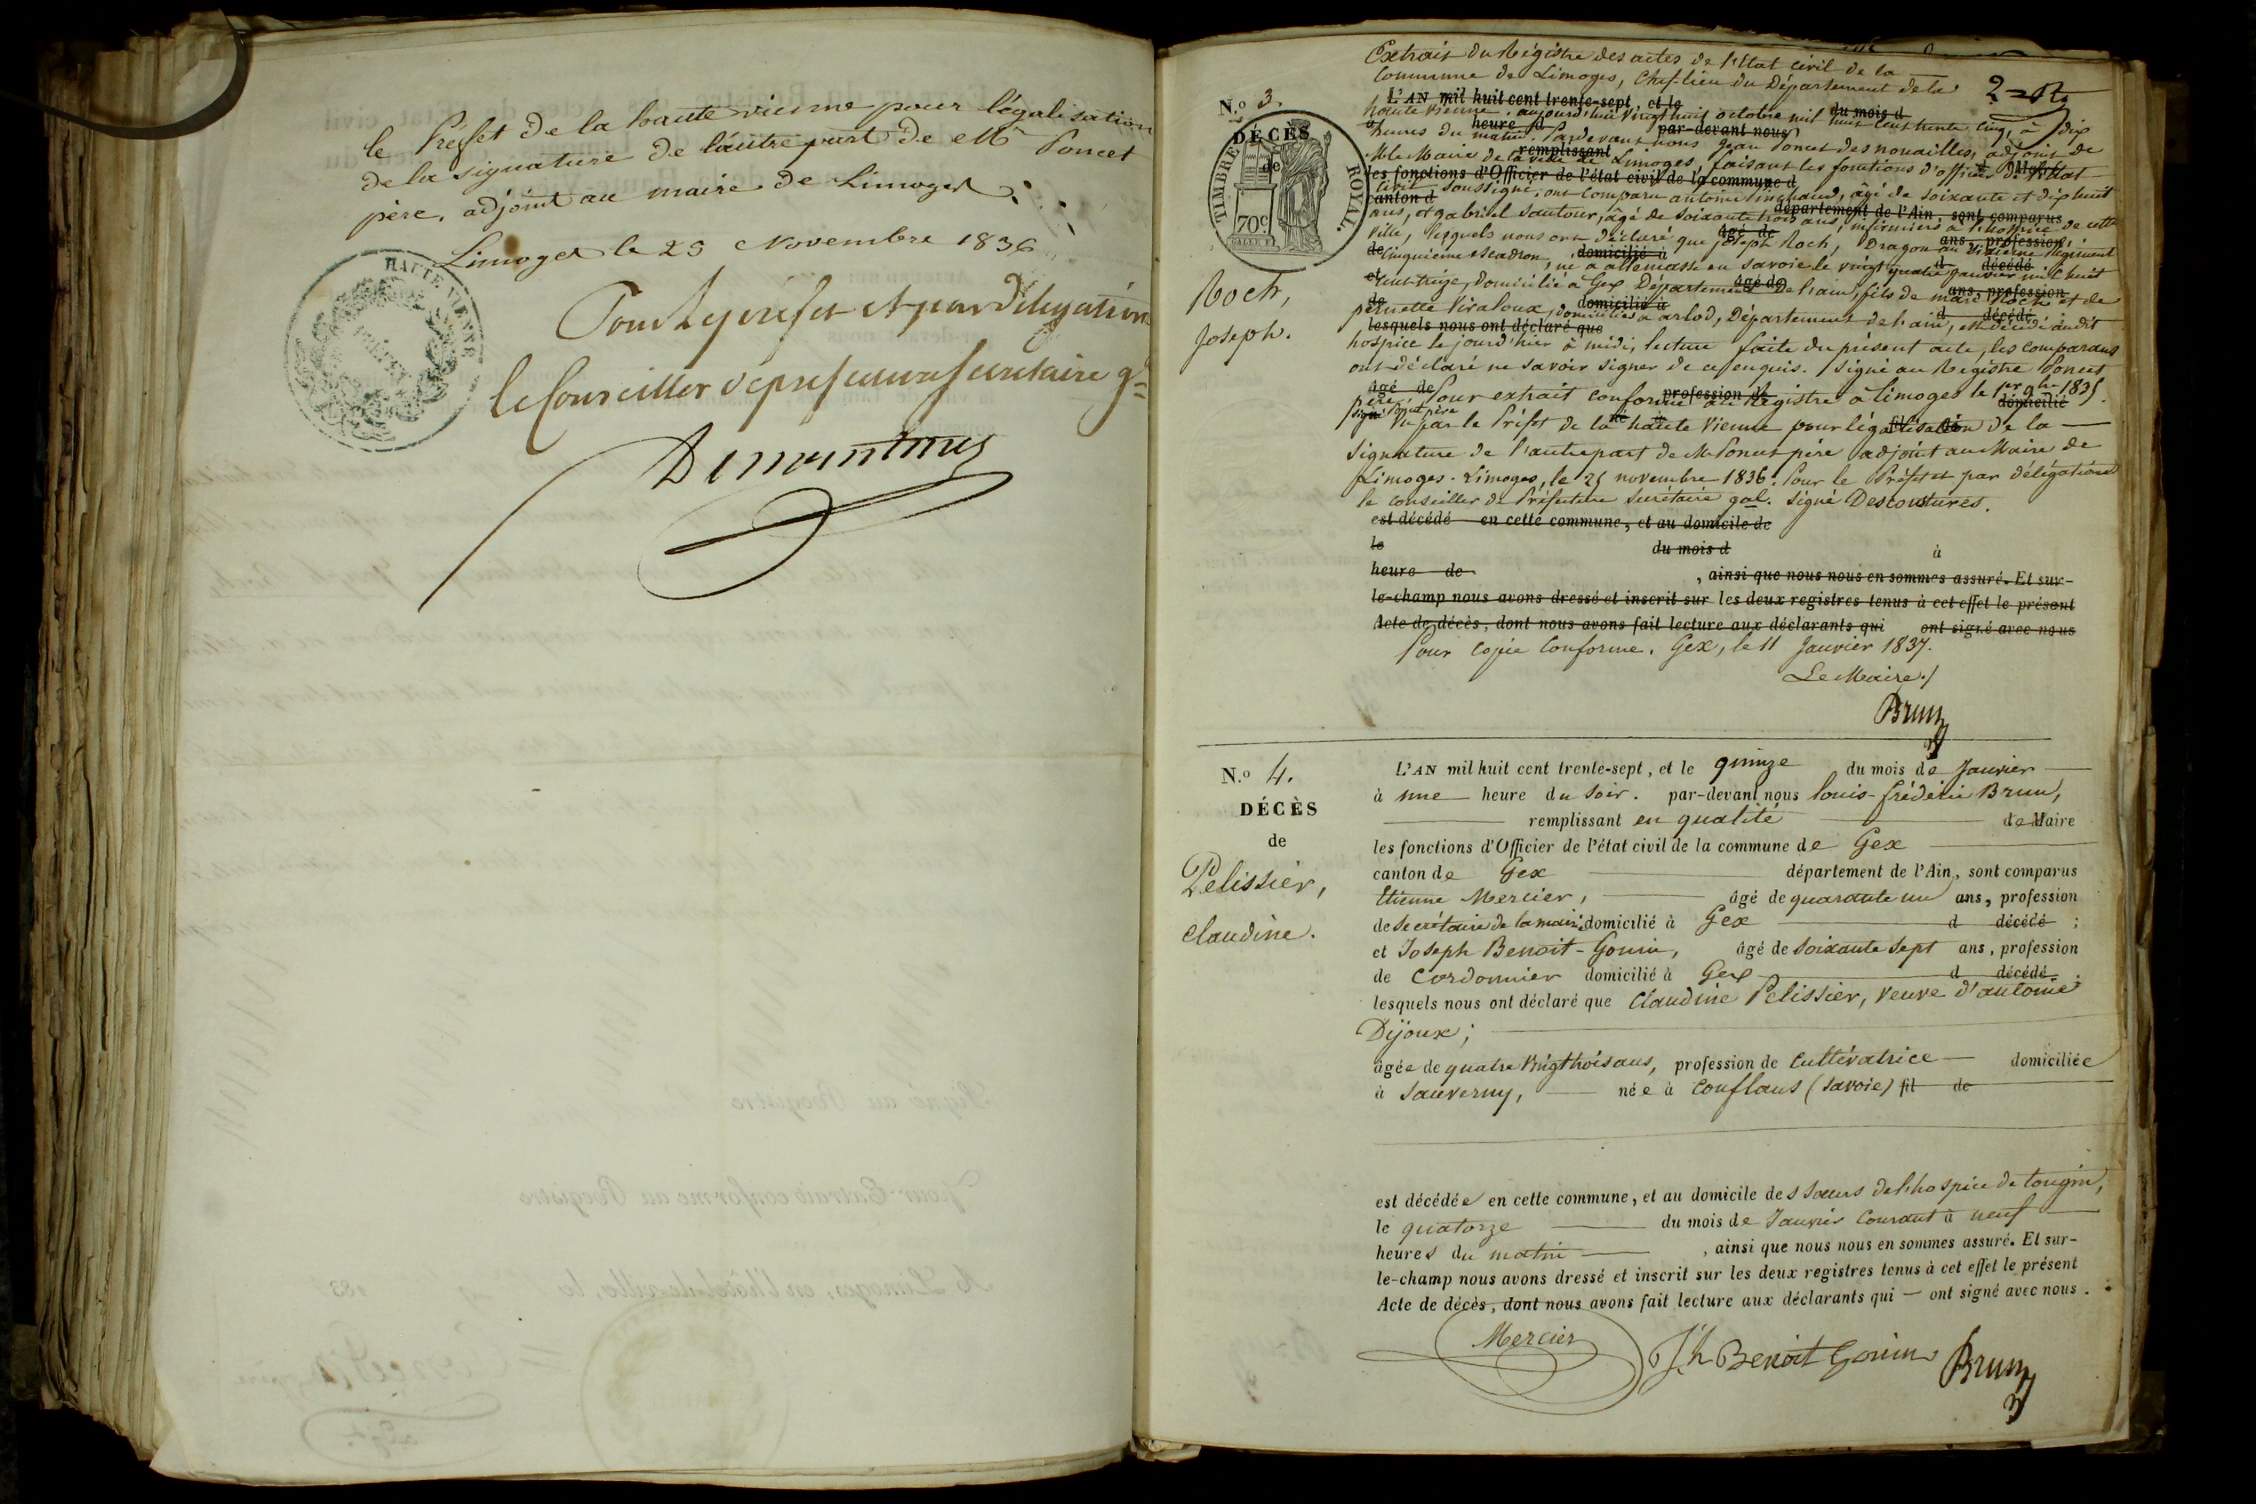 le Préfet de la haute vienne pour légalisation
de la signature de l'autre part de Mr Poncet
père, adjoint au maire de Limoges.
Limoges le 25 Novembre 1836
HAUTE VIENNE
Pour le préfet et par délégation
le Conseiller de préfecture secrétaire gal
Extrait du Régistre des actes de l'Etat civil de la
Commune de Limoges, Chef-lieu du Département de la
N.o 3.
L'AN mil huit cent trente-sept, et le
haute Vienne. aujourd'hui vingt huit octobre mil huit cent trente cinq, à dix
du mois d
DÉCÈS
heure d
par-devant nous
heures du matin. Pardevant nous Jean Poncet des nouailles, adjoint de
remplissant
M. le Maire de la ville de Limoges, faisant les fonctions d'officier de l'état
de
les fonctions d'Officier de l'état civil de la commune d
civil soussigné, ont comparu antoine âgé de soixante et dix huit
TIMBRE ROYAL.
70c
canton d
département de l'Ain, sont comparus
ans, et gabriel Sautour, âgé de soixante trois ans, infirmiers à l'hospice de cette
âgé de
ans, profession
ville, lesquels nous ont déclaré que Joseph Roch, Dragon au Régiment
de
domicilié à
d décédé
cinquième escadron, né à allemasse en Savoie le vingt quatre janvier mil huit
et
âgé de
ans, profession
cent treize, Domicilié à Gex Département de l'ain, fils de marc Roch et de
Roch,
de
domicilié à
d décédé
pernette Viraloux, domiciliés à arlod, Département de l'ain, est décédé audit
lesquels nous ont déclaré que
Joseph.
hospice le jourd'hier à midi, lecture faite du présent acte, les comparans
ont déclaré ne savoir signer de ce enquis. Signé au Registre Poncet
âgé de
profession de
domicilié
père. Pour extrait conforme au Régistre à Limoges le 1er 9bre 1835.
signé Poncet père
né à
fil de
Vu par le Préfet de la haute Vienne pour légalisation de la
signature de l'autre part de M. Poncet père adjoint au Maire de
Limoges. Limoges, le 25 novembre 1836. Pour le Préfet et par délégation
le conseiller de Préfecture secrétaire gal. signé Descoutures.
est décédé en cette commune, et au domicile de
le du mois d à
heure de , ainsi que nous nous en sommes assuré. Et sur-
le-champ nous avons dressé et inscrit sur les deux registres tenus à cet effet le présent
Acte de décès, dont nous avons fait lecture aux déclarants qui ont signé avec nous
Pour copie Conforme. Gex, le 11 Janvier 1837.
Le Maire./
Brun
N.o 4.
DÉCÈS
de
Pelissier,
Claudine.
L'AN mil huit cent trente-sept, et le quinze du mois de Janvier
à une heure du Soir. par-devant nous louis-frédéric Brun,
remplissant en qualité de Maire
les fonctions d'Officier de l'état civil de la commune de Gex
canton de Gex département de l'Ain, sont comparus
Etienne Mercier, âgé de quarante un ans, profession
de secrétaire de la mairie domicilié à Gex d décédé ;
et Joseph Benoit-Gonin, âgé de soixante sept ans, profession
de Cordonnier domicilié à Gex d décédé.
lesquels nous ont déclaré que Claudine Pelissier, veuve d'antoine
Dijoux;
âgée de quatre vingt trois ans, profession de Cultivatrice domiciliée
à Sauverny, née à Conflans (Savoie) fil de
est décédée en cette commune, et au domicile des Sœurs de l'hospice de tougin,
le quatorze du mois de Janvier Courant à neuf
heures du matin , ainsi que nous nous en sommes assuré. Et sur-
le-champ nous avons dressé et inscrit sur les deux registres tenus à cet effet le présent
Acte de décès, dont nous avons fait lecture aux déclarants qui ont signé avec nous.
Mercier Jh Benoit Gonin Brun